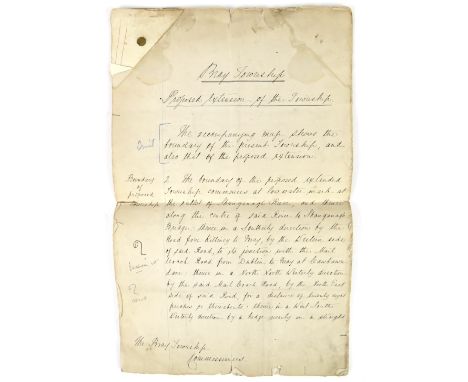 Bray Township
Proposed extension of the Township.
The accompanying map shews the
boundary of the present Township, and
also that of the proposed extension.
Boundary
of
proposed
Township
2. The boundary of the proposed extended
Township commences at low water mark at
the outlet of Shanganagh River, and thence
along the centre of said River to Shanganagh
Bridge. thence in a Southerly direction by the
Road from Killiney to Bray, by the Western side
of said Road, to its junction with the Mail
Coach Road from Dublin to Bray at
thence in a North North Westerly direction
by the said Mail Coach Road, by the North East
side of said Road, for a distance of twenty eight
perches or thereabouts: thence in a West South
Westerly direction by a hedge nearly in a straight
The Bray Township
Commissioners